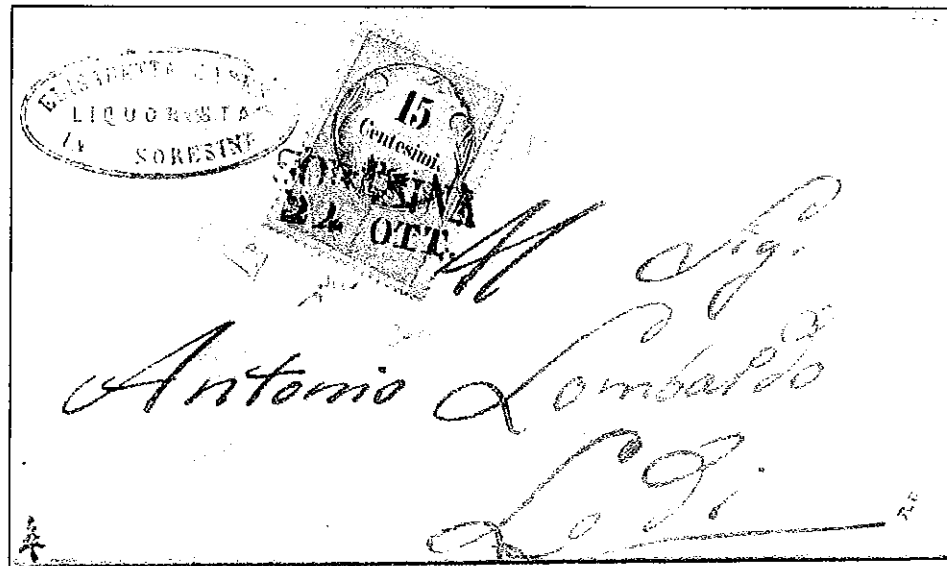 ELISABETTA
LIQUORISTA
SORESINA
15
Centesimi
SORESINA
24 OTT.
Al Sig.
Antonio Lombardo
Lodi